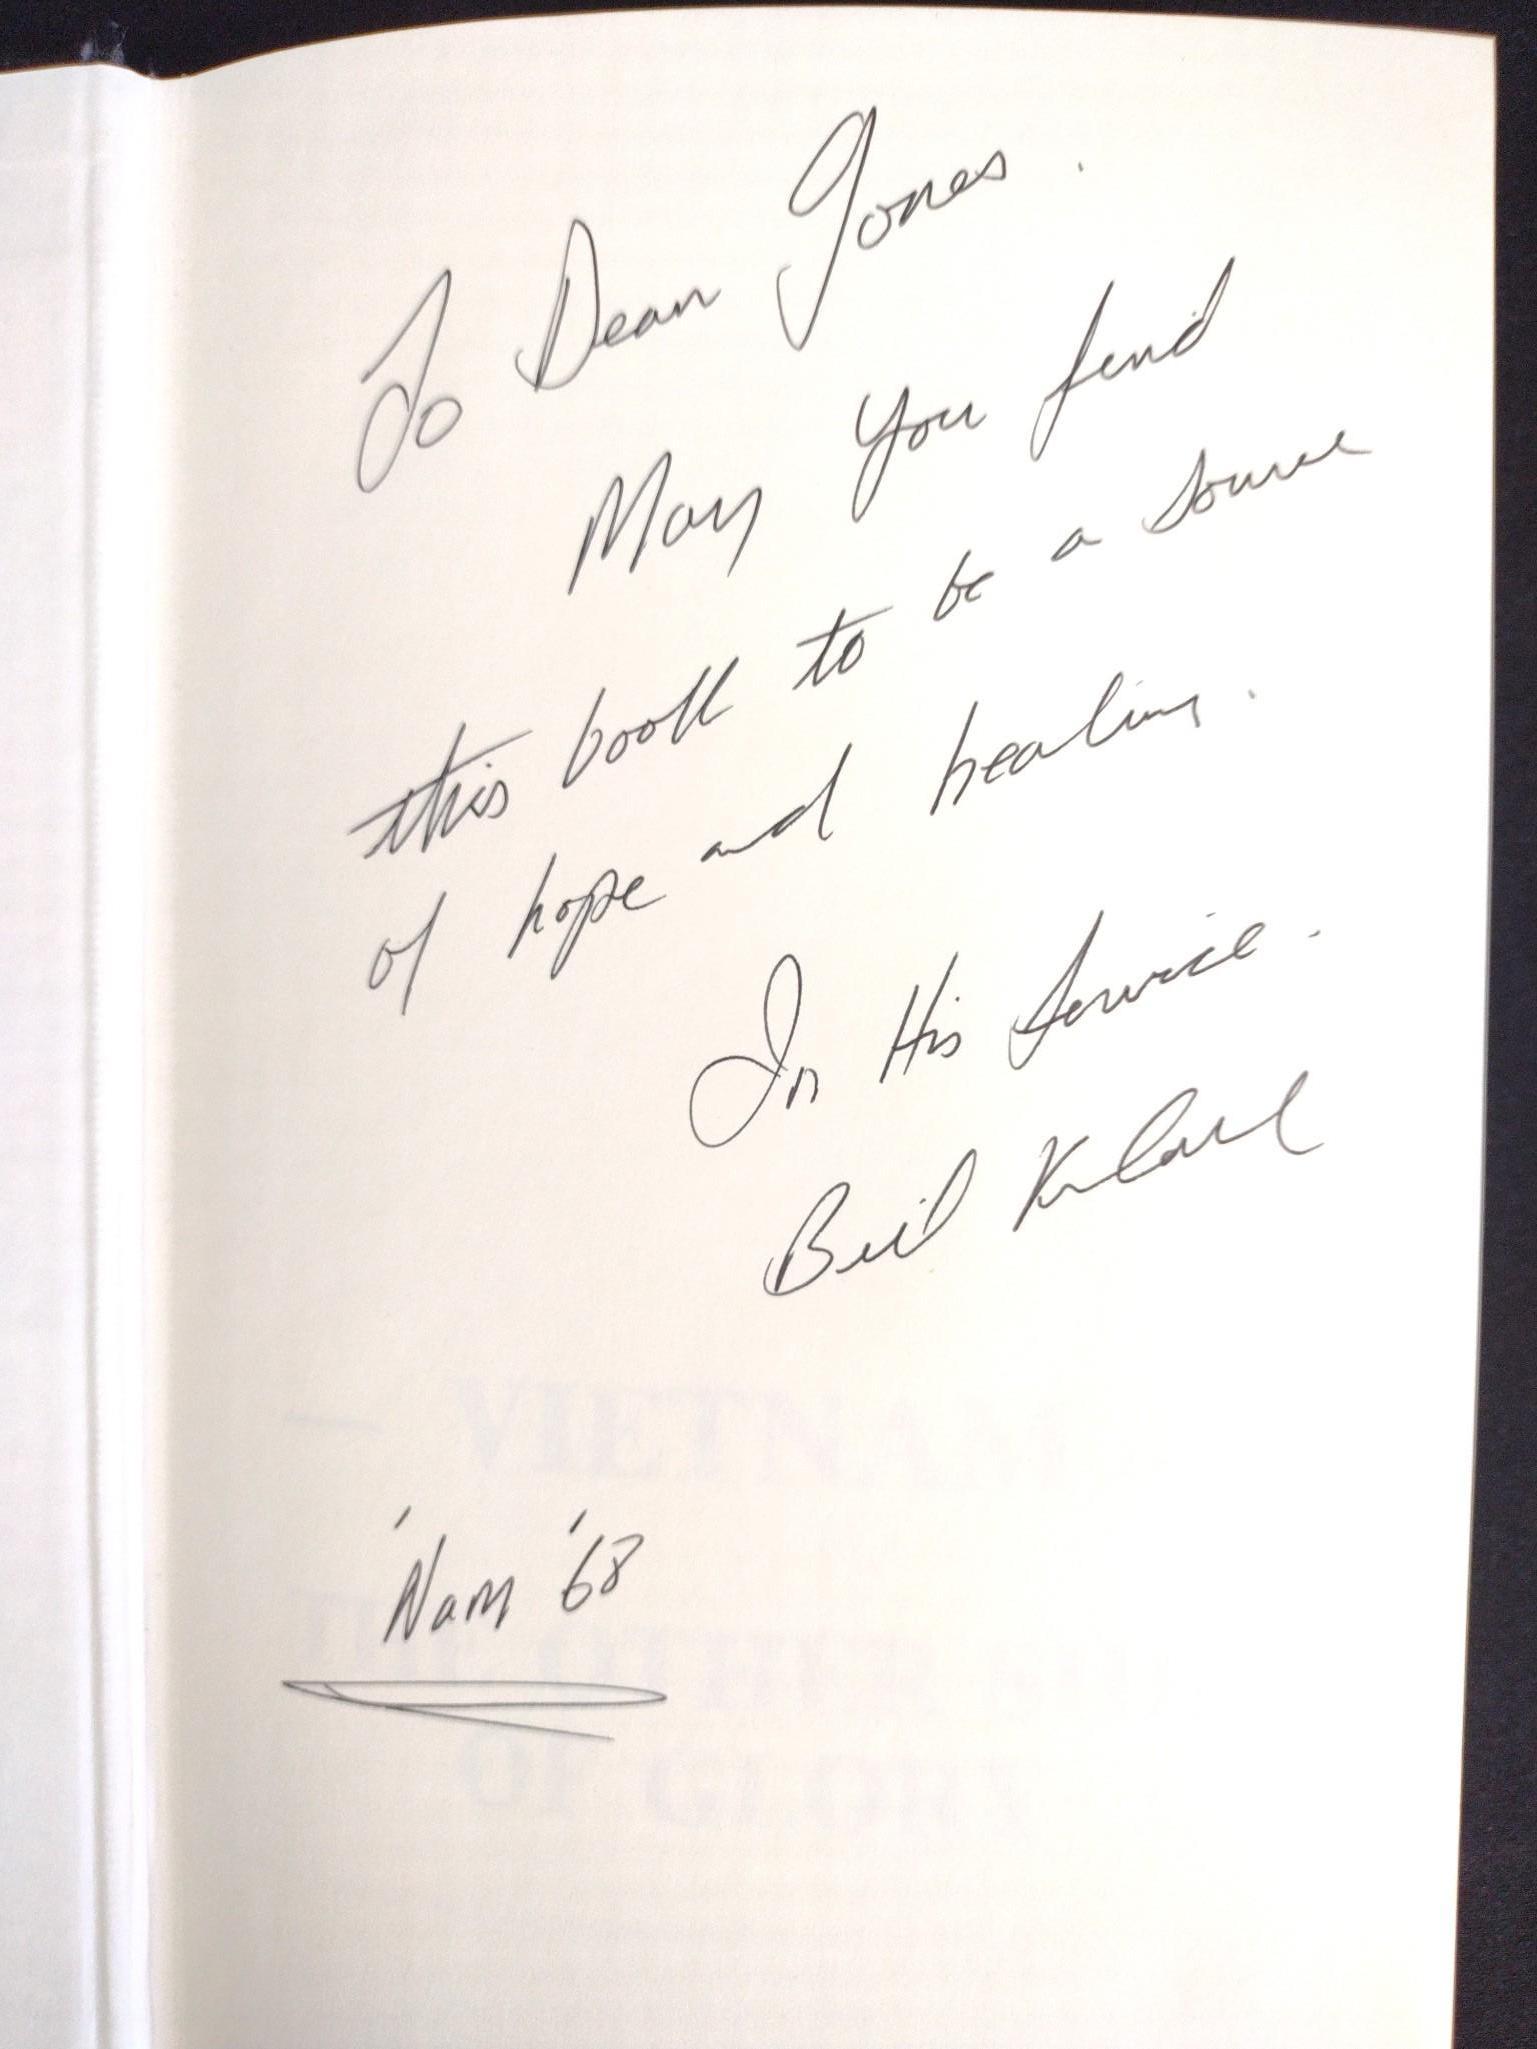 To Dean Jones.
May You find
this book to be a source
of hope and healing.
In His Service.
Bill Kimball
VIETNAM
'Nam '68
THE OTHER SIDE
OF GLORY